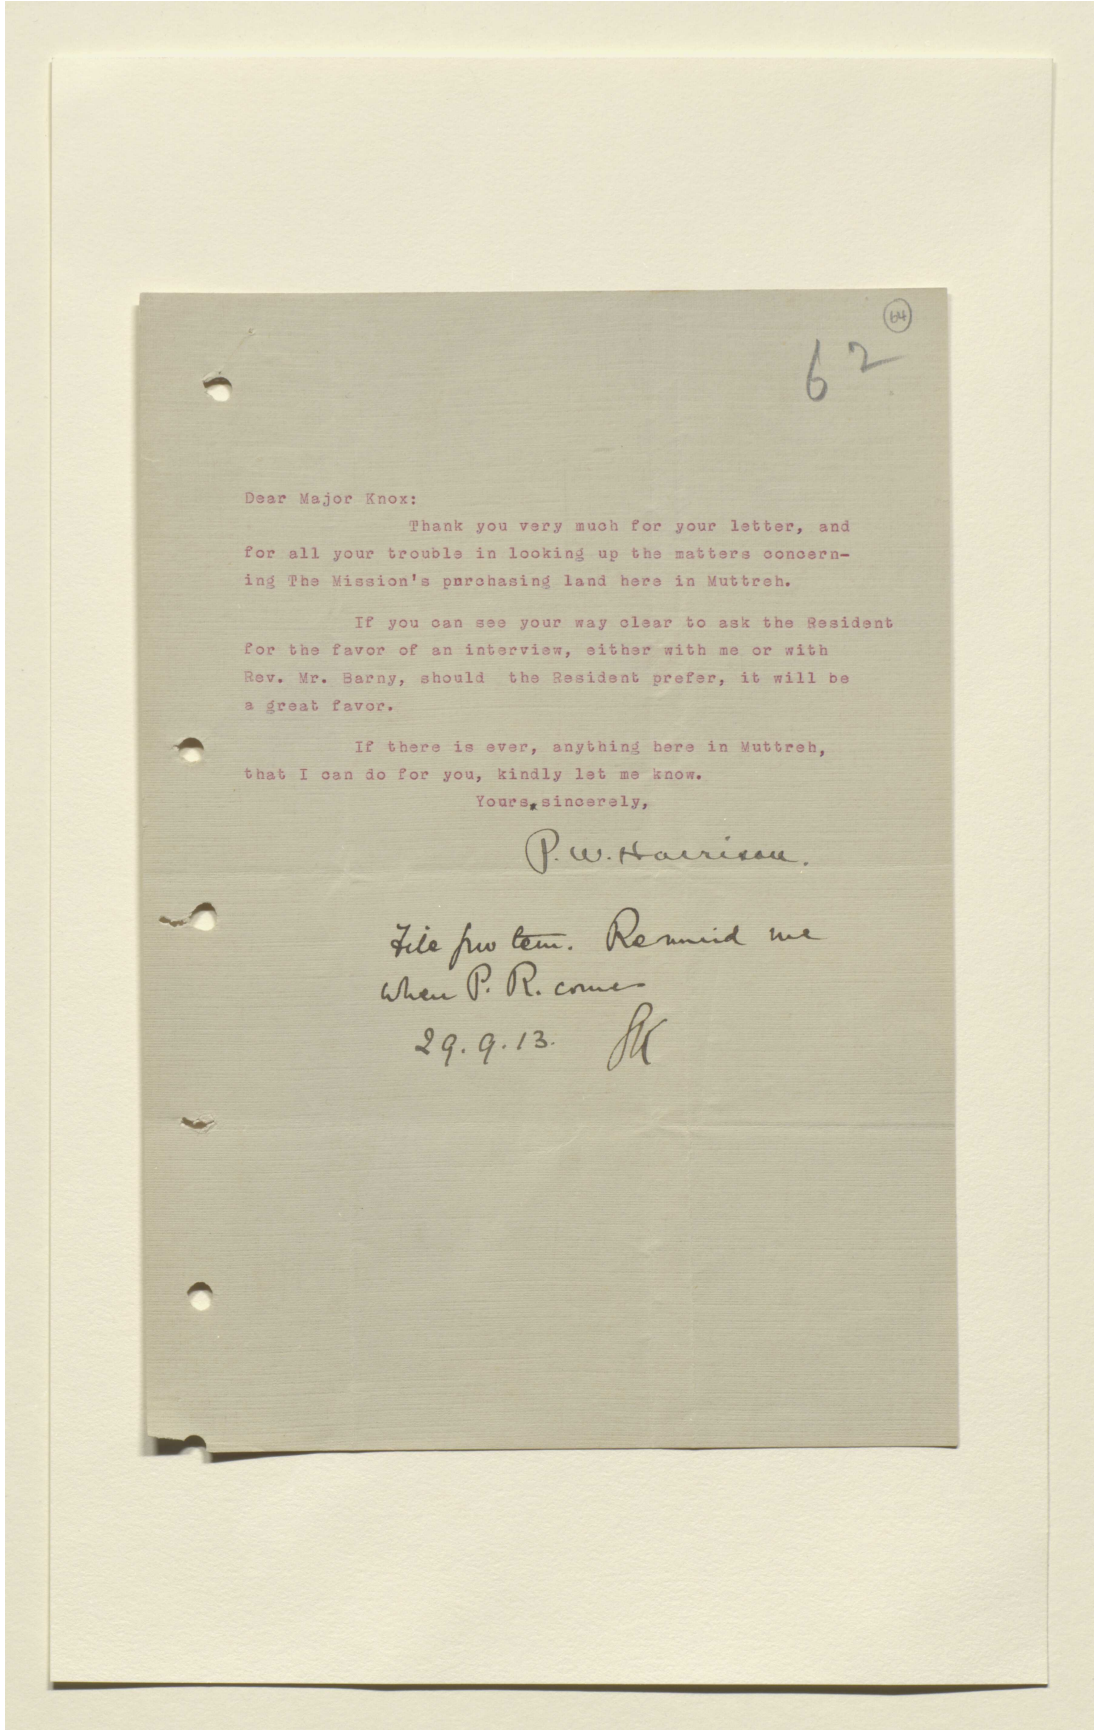 64
62
Dear Major Knox:
Thank you very much for your letter, and
for all your trouble in looking up the matters concern-
ing The Mission's purchasing land here in Muttreh.
If you can see your way clear to ask the Resident
for the favor of an interview, either with me or with
Rev. Mr. Barny, should the Resident prefer, it will be
a great favor.
If there is ever, anything here in Muttreh,
that I can do for you, kindly let me know.
Yours, sincerely,
P. W. Harrison.
File pro tem. Remind me
when P. R. comes
29.9.13. SK